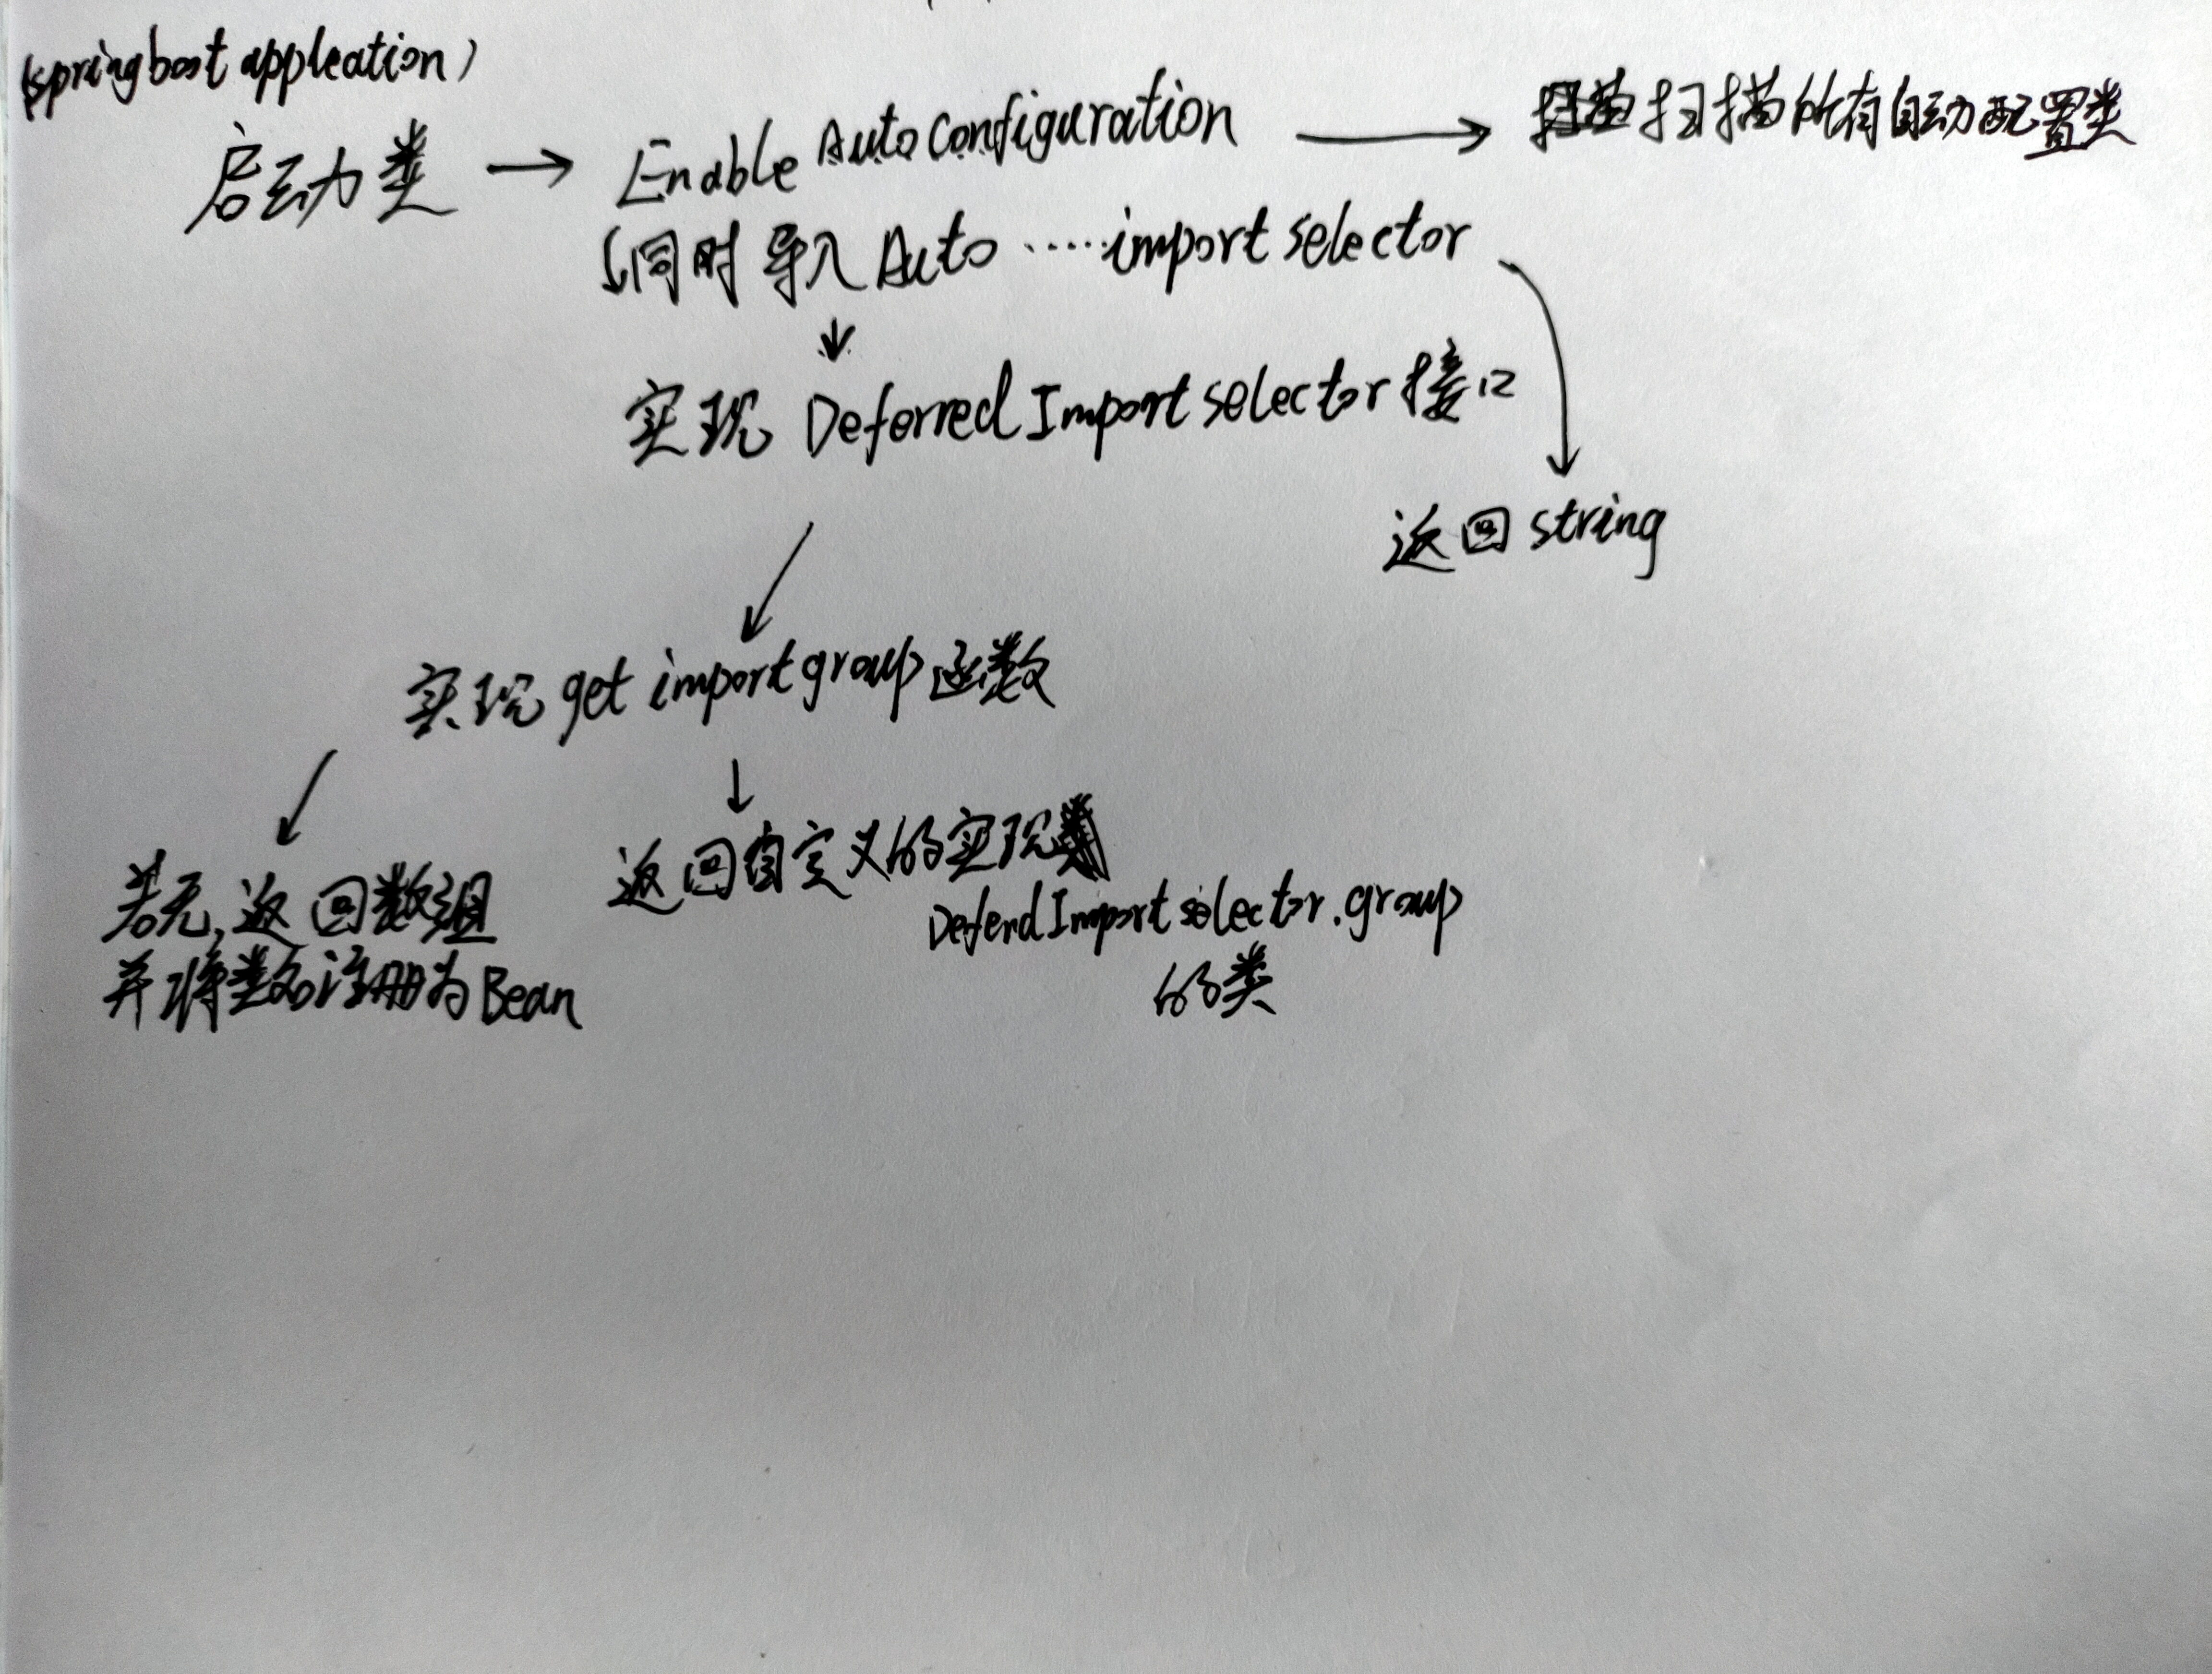 (springboot appleation)
启动类 → Enable AutoConfiguration → 扫描所有自动配置类
同时导入 Auto ······import selector
实现 Deferred Import selector 接口
返回 string
实现 get import group 函数
返回自定义的实现
若无, 返回数组
DeferdImport selector.group
并将类名注册为 Bean
的类